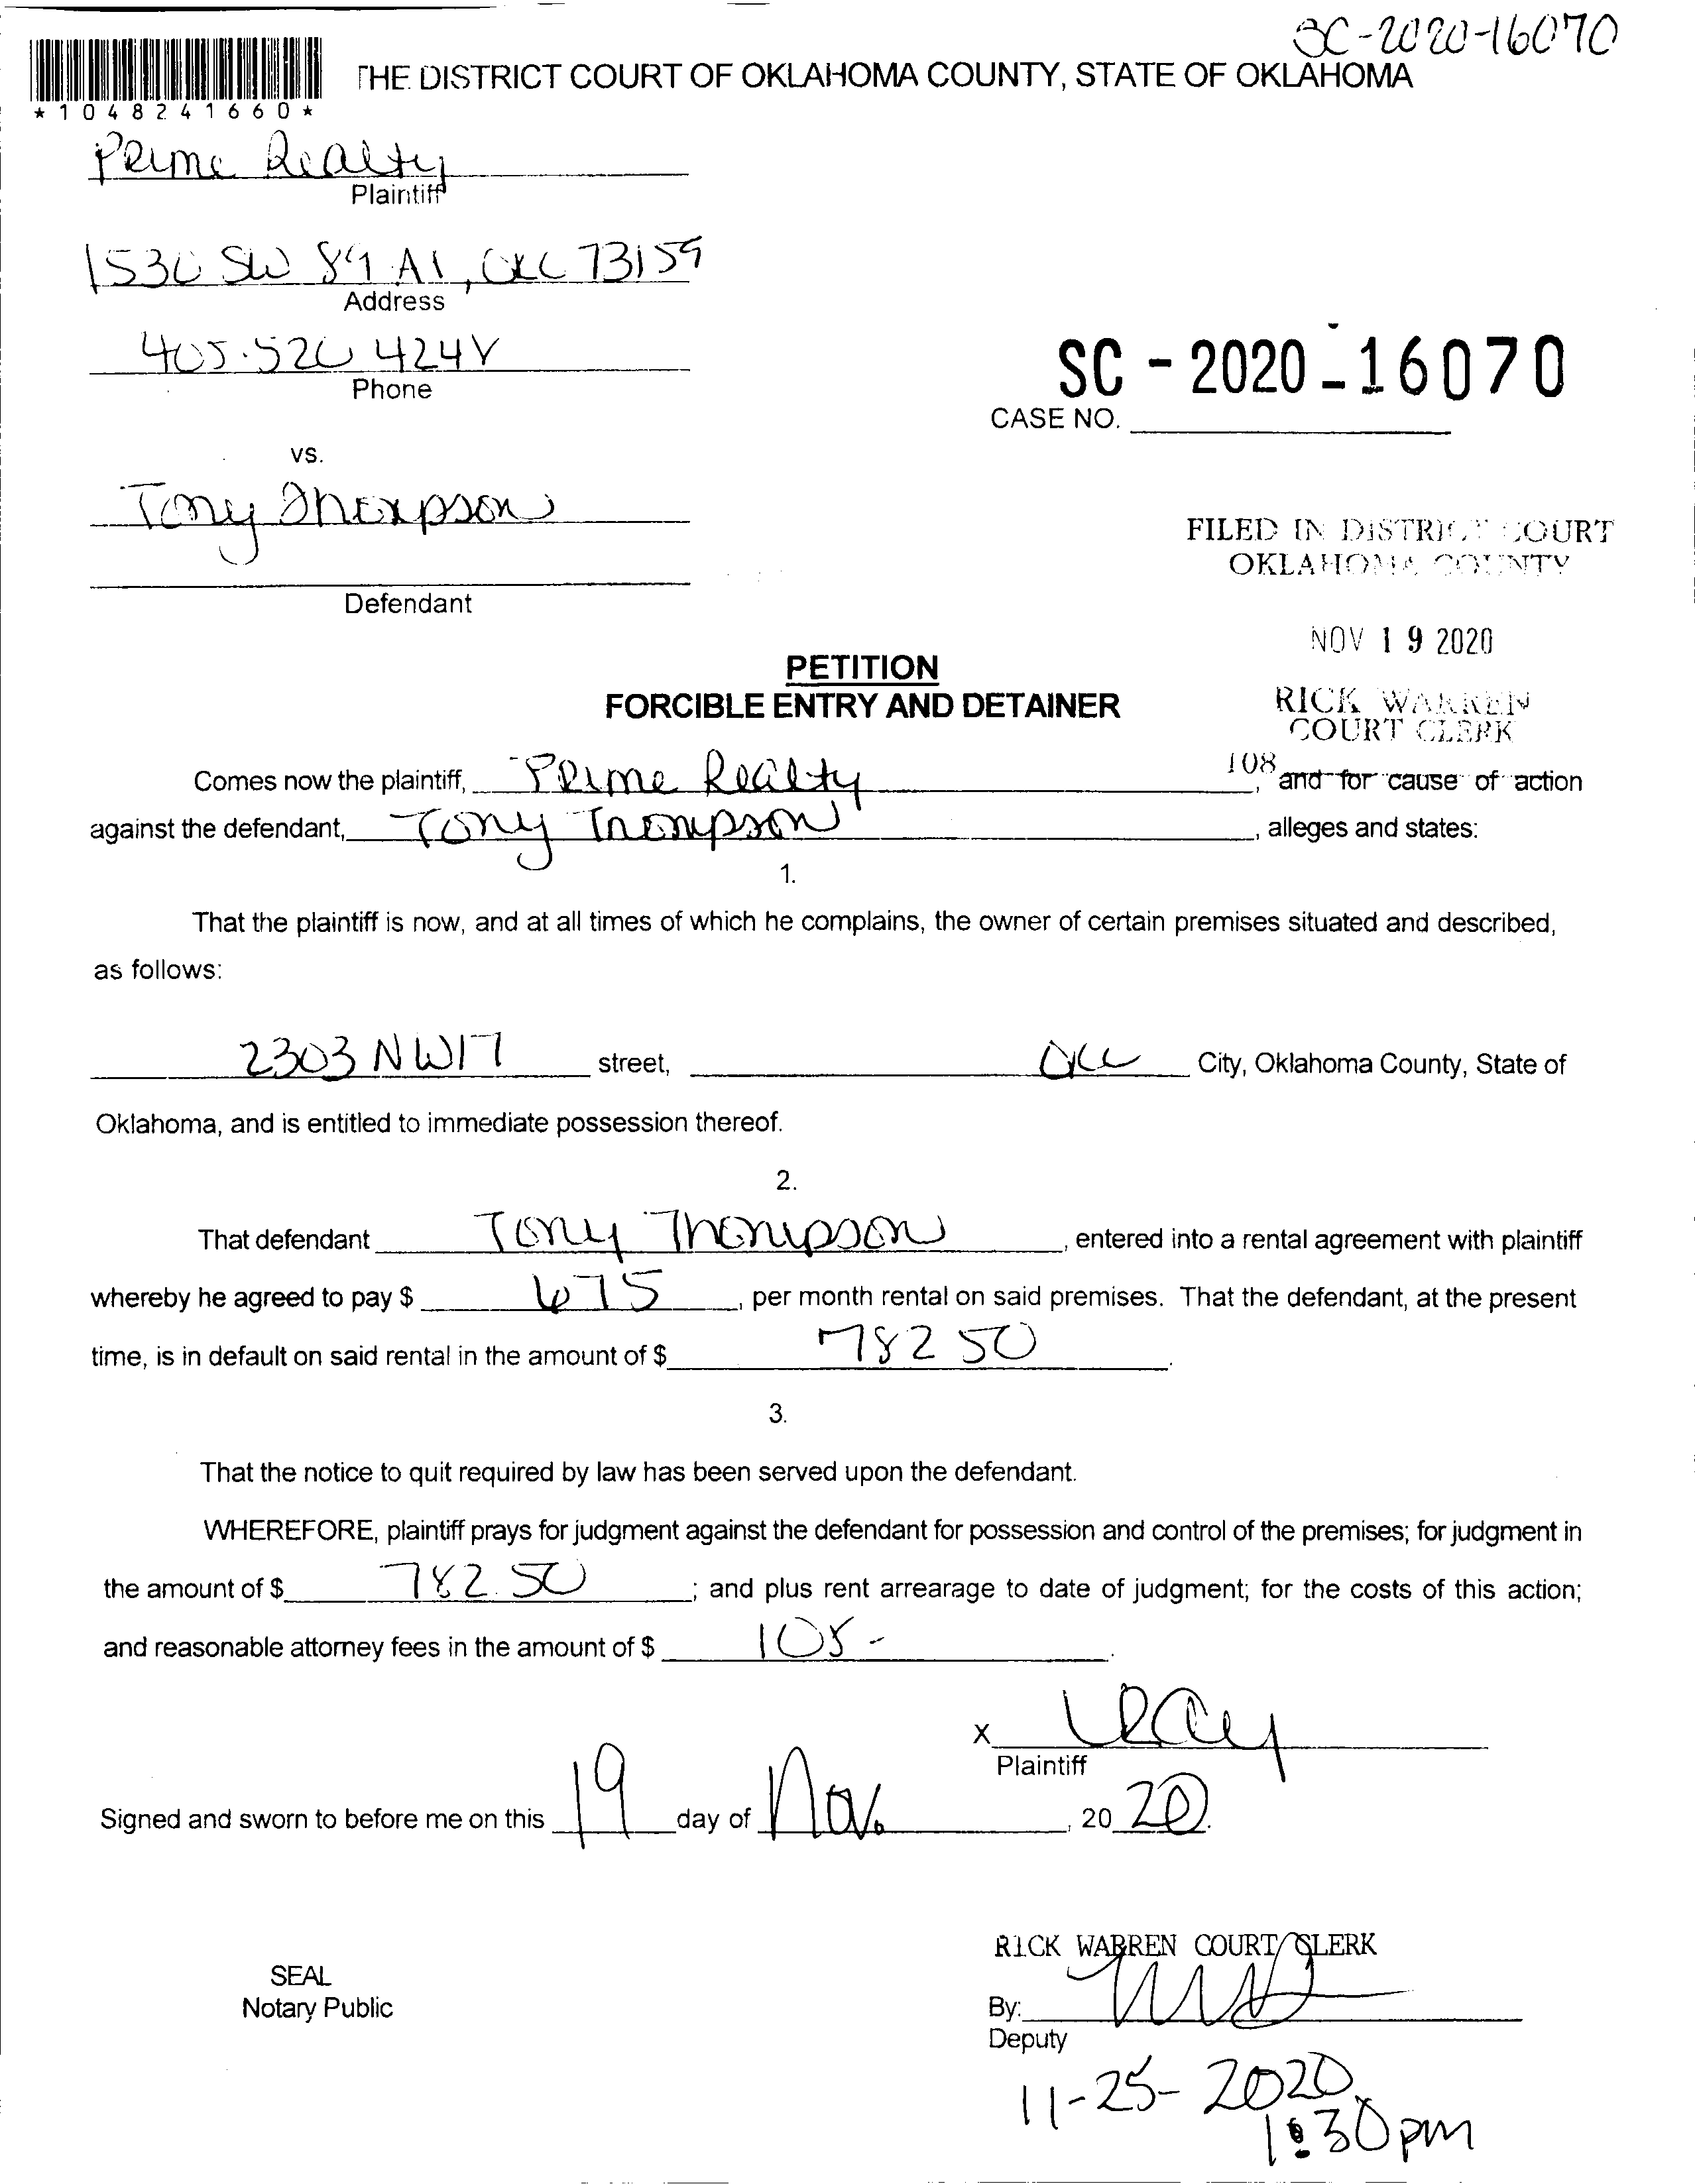 SC-2020-16070
THE DISTRICT COURT OF OKLAHOMA COUNTY, STATE OF OKLAHOMA
*1048241660*
Prime Realty
Plaintiff
1530 SW 89 A1, OKC 73159
Address
405.520 424
Phone
SC - 2020 - 16070
CASE NO.
vs.
Tony Thompson
FILED IN DISTRICT COURT
OKLAHOMA COUNTY
Defendant
NOV 19 2020
PETITION
FORCIBLE ENTRY AND DETAINER
RICK WARREN
COURT CLERK
108
Comes now the plaintiff, Prime Realty, and for cause of action
against the defendant, Tony Thompson, alleges and states:
1.
That the plaintiff is now, and at all times of which he complains, the owner of certain premises situated and described,
as follows:
2303 NW17 street, OKC City, Oklahoma County, State of
Oklahoma, and is entitled to immediate possession thereof.
2.
That defendant Tony Thompson, entered into a rental agreement with plaintiff
whereby he agreed to pay $ 675, per month rental on said premises. That the defendant, at the present
time, is in default on said rental in the amount of $ 782 50.
3.
That the notice to quit required by law has been served upon the defendant.
WHEREFORE, plaintiff prays for judgment against the defendant for possession and control of the premises; for judgment in
the amount of $ 782.50; and plus rent arrearage to date of judgment; for the costs of this action;
and reasonable attorney fees in the amount of $
X
Plaintiff
Signed and sworn to before me on this 19 day of Nov., 20 20.
RICK WARREN COURT CLERK
SEAL
Notary Public
By:
Deputy
11-25-2020
1:30pm